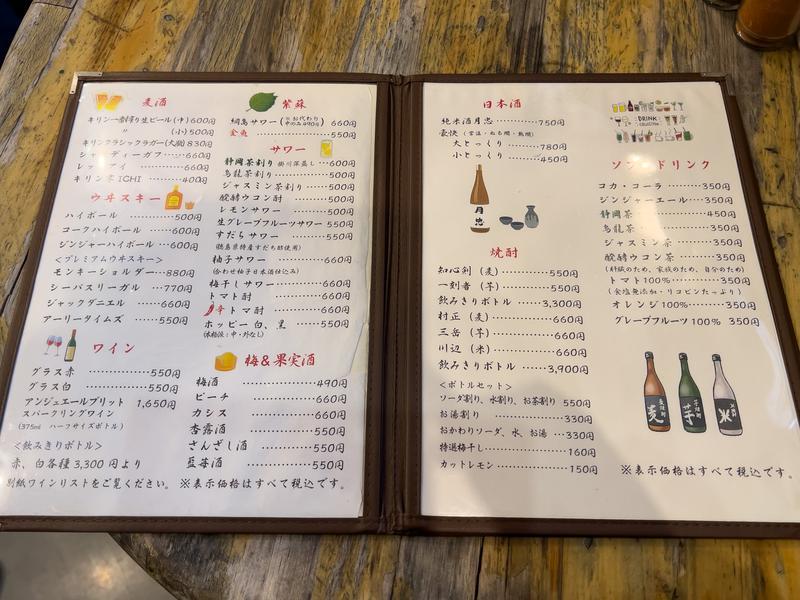 麦酒
キリン一番搾り生ビール(中)600円
〃 (小)500円
キリンクラシックラガー(大瓶)830円
シャンディーガフ……660円
レッドアイ……660円
キリン零ICHI……400円
ウヰスキー
ハイボール……500円
コークハイボール……600円
ジンジャーハイボール…600円
<プレミアムウヰスキー>
モンキーショルダー…880円
シーバスリーガル……770円
ジャックダニエル……660円
アーリータイムズ……550円
ワイン
グラス赤……550円
グラス白……550円
アンジュエールブリット 1,650円
スパークリングワイン
(375ml ハーフサイズボトル)
<飲みきりボトル>
赤、白各種3,300円より
別紙ワインリストをご覧ください。
紫蘇
綱島サワー(※お代わり中のみ490円) 660円
金魚……550円
サワー
静岡茶割り 掛川深蒸し…600円
烏龍茶割り……500円
ジャスミン茶割り……500円
醗酵ウコン酎……500円
レモンサワー……500円
生グレープフルーツサワー 550円
すだちサワー……550円
(徳島県特産すだち酎使用)
柚子サワー……660円
(合わせ柚子日本酒仕込み)
梅干しサワー……660円
トマト酎……660円
辛トマ酎……660円
ホッピー 白、黒……550円
(体格派:中・外なし)
梅&果実酒
梅酒……490円
ピーチ……660円
カシス……660円
杏露酒……550円
さんざし酒……550円
藍苺酒……550円
※表示価格はすべて税込です。
日本酒
純米酒月忠……750円
豪快(常温・ぬる燗・熱燗)
大とっくり……780円
小とっくり……450円
月忠
焼酎
知心剣(麦)……550円
一刻者(芋)……550円
飲みきりボトル……3,300円
村正(麦)……660円
三岳(芋)……660円
川辺(米)……660円
飲みきりボトル……3,900円
<ボトルセット>
ソーダ割り、水割り、お茶割り 550円
お湯割り……330円
おかわりソーダ、水、お湯…330円
特選梅干し……160円
カットレモン……150円
DRINK
COLLECTION
ソフトドリンク
コカ・コーラ……350円
ジンジャーエール…350円
静岡茶……450円
烏龍茶……350円
ジャスミン茶……350円
醗酵ウコン茶……350円
(肝臓のため、家族のため、自分のため)
トマト100%……350円
(食塩無添加・リコピンたっぷり)
オレンジ100%……350円
グレープフルーツ100% 350円
麦
芋
米
※表示価格はすべて税込です。